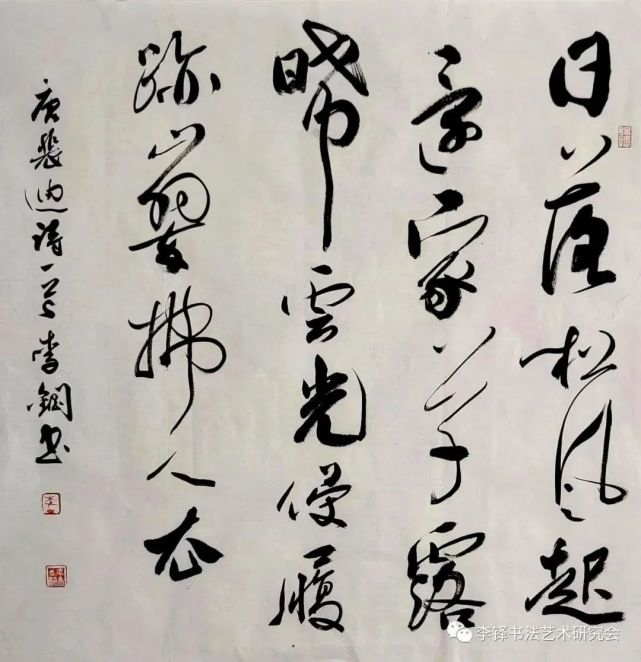 日落松風起
還家草露
晞雲光侵履
跡山翠拂人衣
唐裴迪詩一首李鋼書
李铎书法艺术研究会